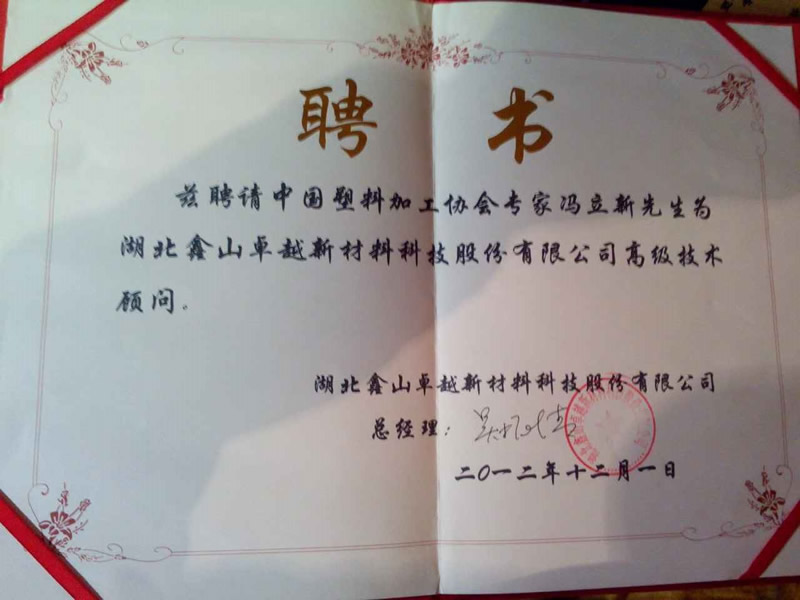 聘书
兹聘请中国塑料加工协会专家冯立新先生为
湖北鑫山卓越新材料科技股份有限公司高级技术
顾问。
湖北鑫山卓越新材料科技股份有限公司
总经理：
二〇一二年十二月一日